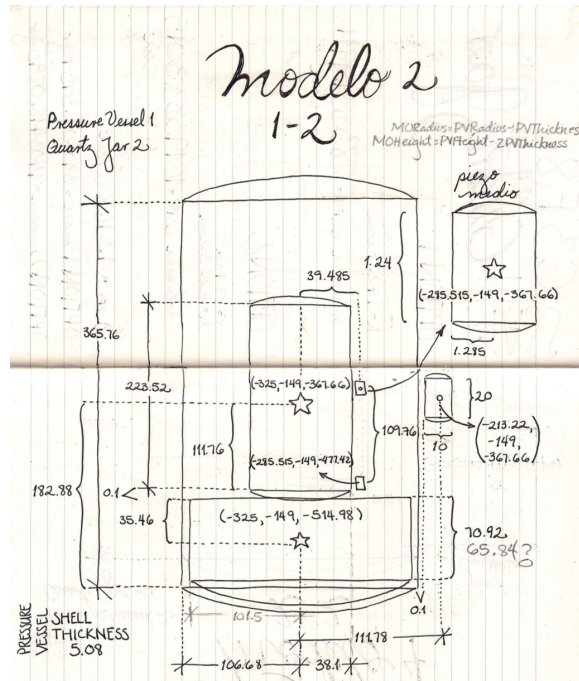 Modelo 2
1-2
Pressure Vessel 1
Quartz Jar 2
MORadius=PVRadius-PVThickness
MOHeight=PVHeight-2PVThickness
piezo
medio
1.24
39.485
(-285.515,-149,-367.66)
365.76
1.285
223.52
(-325,-149,-367.66)
20
109.76
10
(-213.22,
-149,
-367.66)
111.76
(-285.515,-149,-477.42)
182.88
0.1
35.46
(-325,-149,-514.98)
70.92
65.84?
0.1
101.5
111.78
PRESSURE
VESSEL
SHELL
THICKNESS
5.08
106.68
38.1